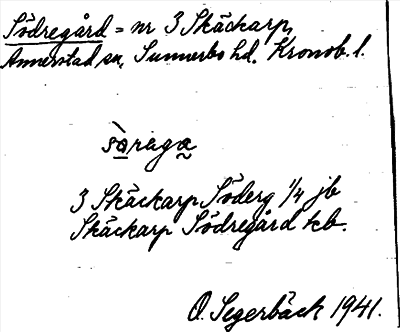 Södregård = nr 3 Skäckarp,
Annerstad sn, Sunnerbo hd. Kronob. l.
sòrega
3 Skäckarp Söderg 1/4 jb
Skäckarp Södregård kb.
O. Segerbäck 1941.